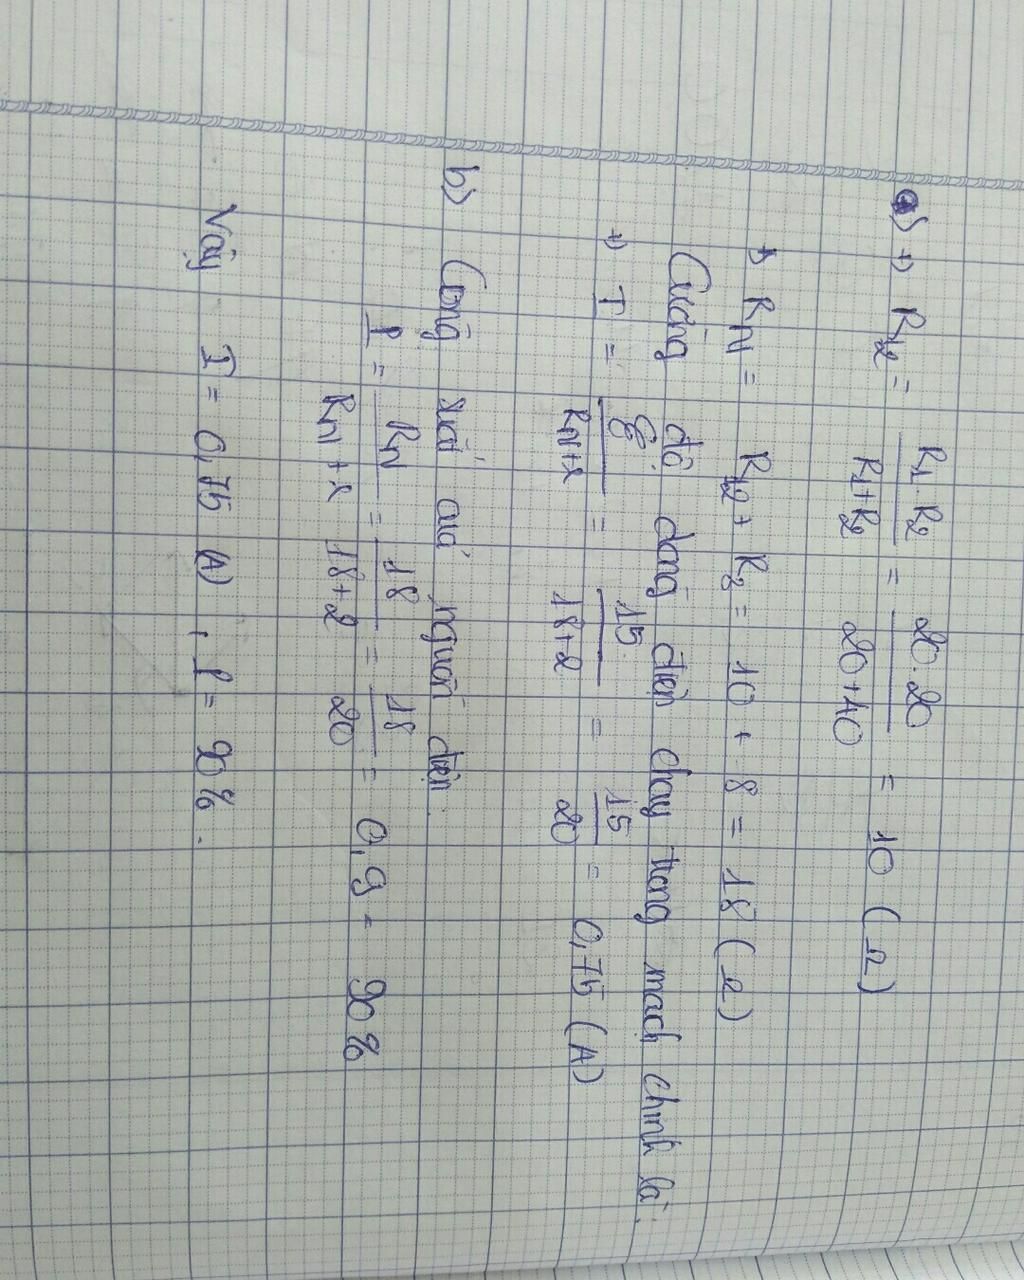 a) +) R12 = R1.R2 / R1+R2 = 20.20 / 20+40 = 10 (Ω)
+) RN = R12 + R3 = 10 + 8 = 18 (Ω)
Cường độ dòng điện chạy trong mạch chính là:
+) I = ξ / RN+r = 15 / 18+2 = 15 / 20 = 0,75 (A)
b) Công suất của nguồn điện.
P = RN / RN+r = 18 / 18+2 = 18 / 20 = 0,9 = 90%
Vậy I = 0,75 (A), P = 90%.